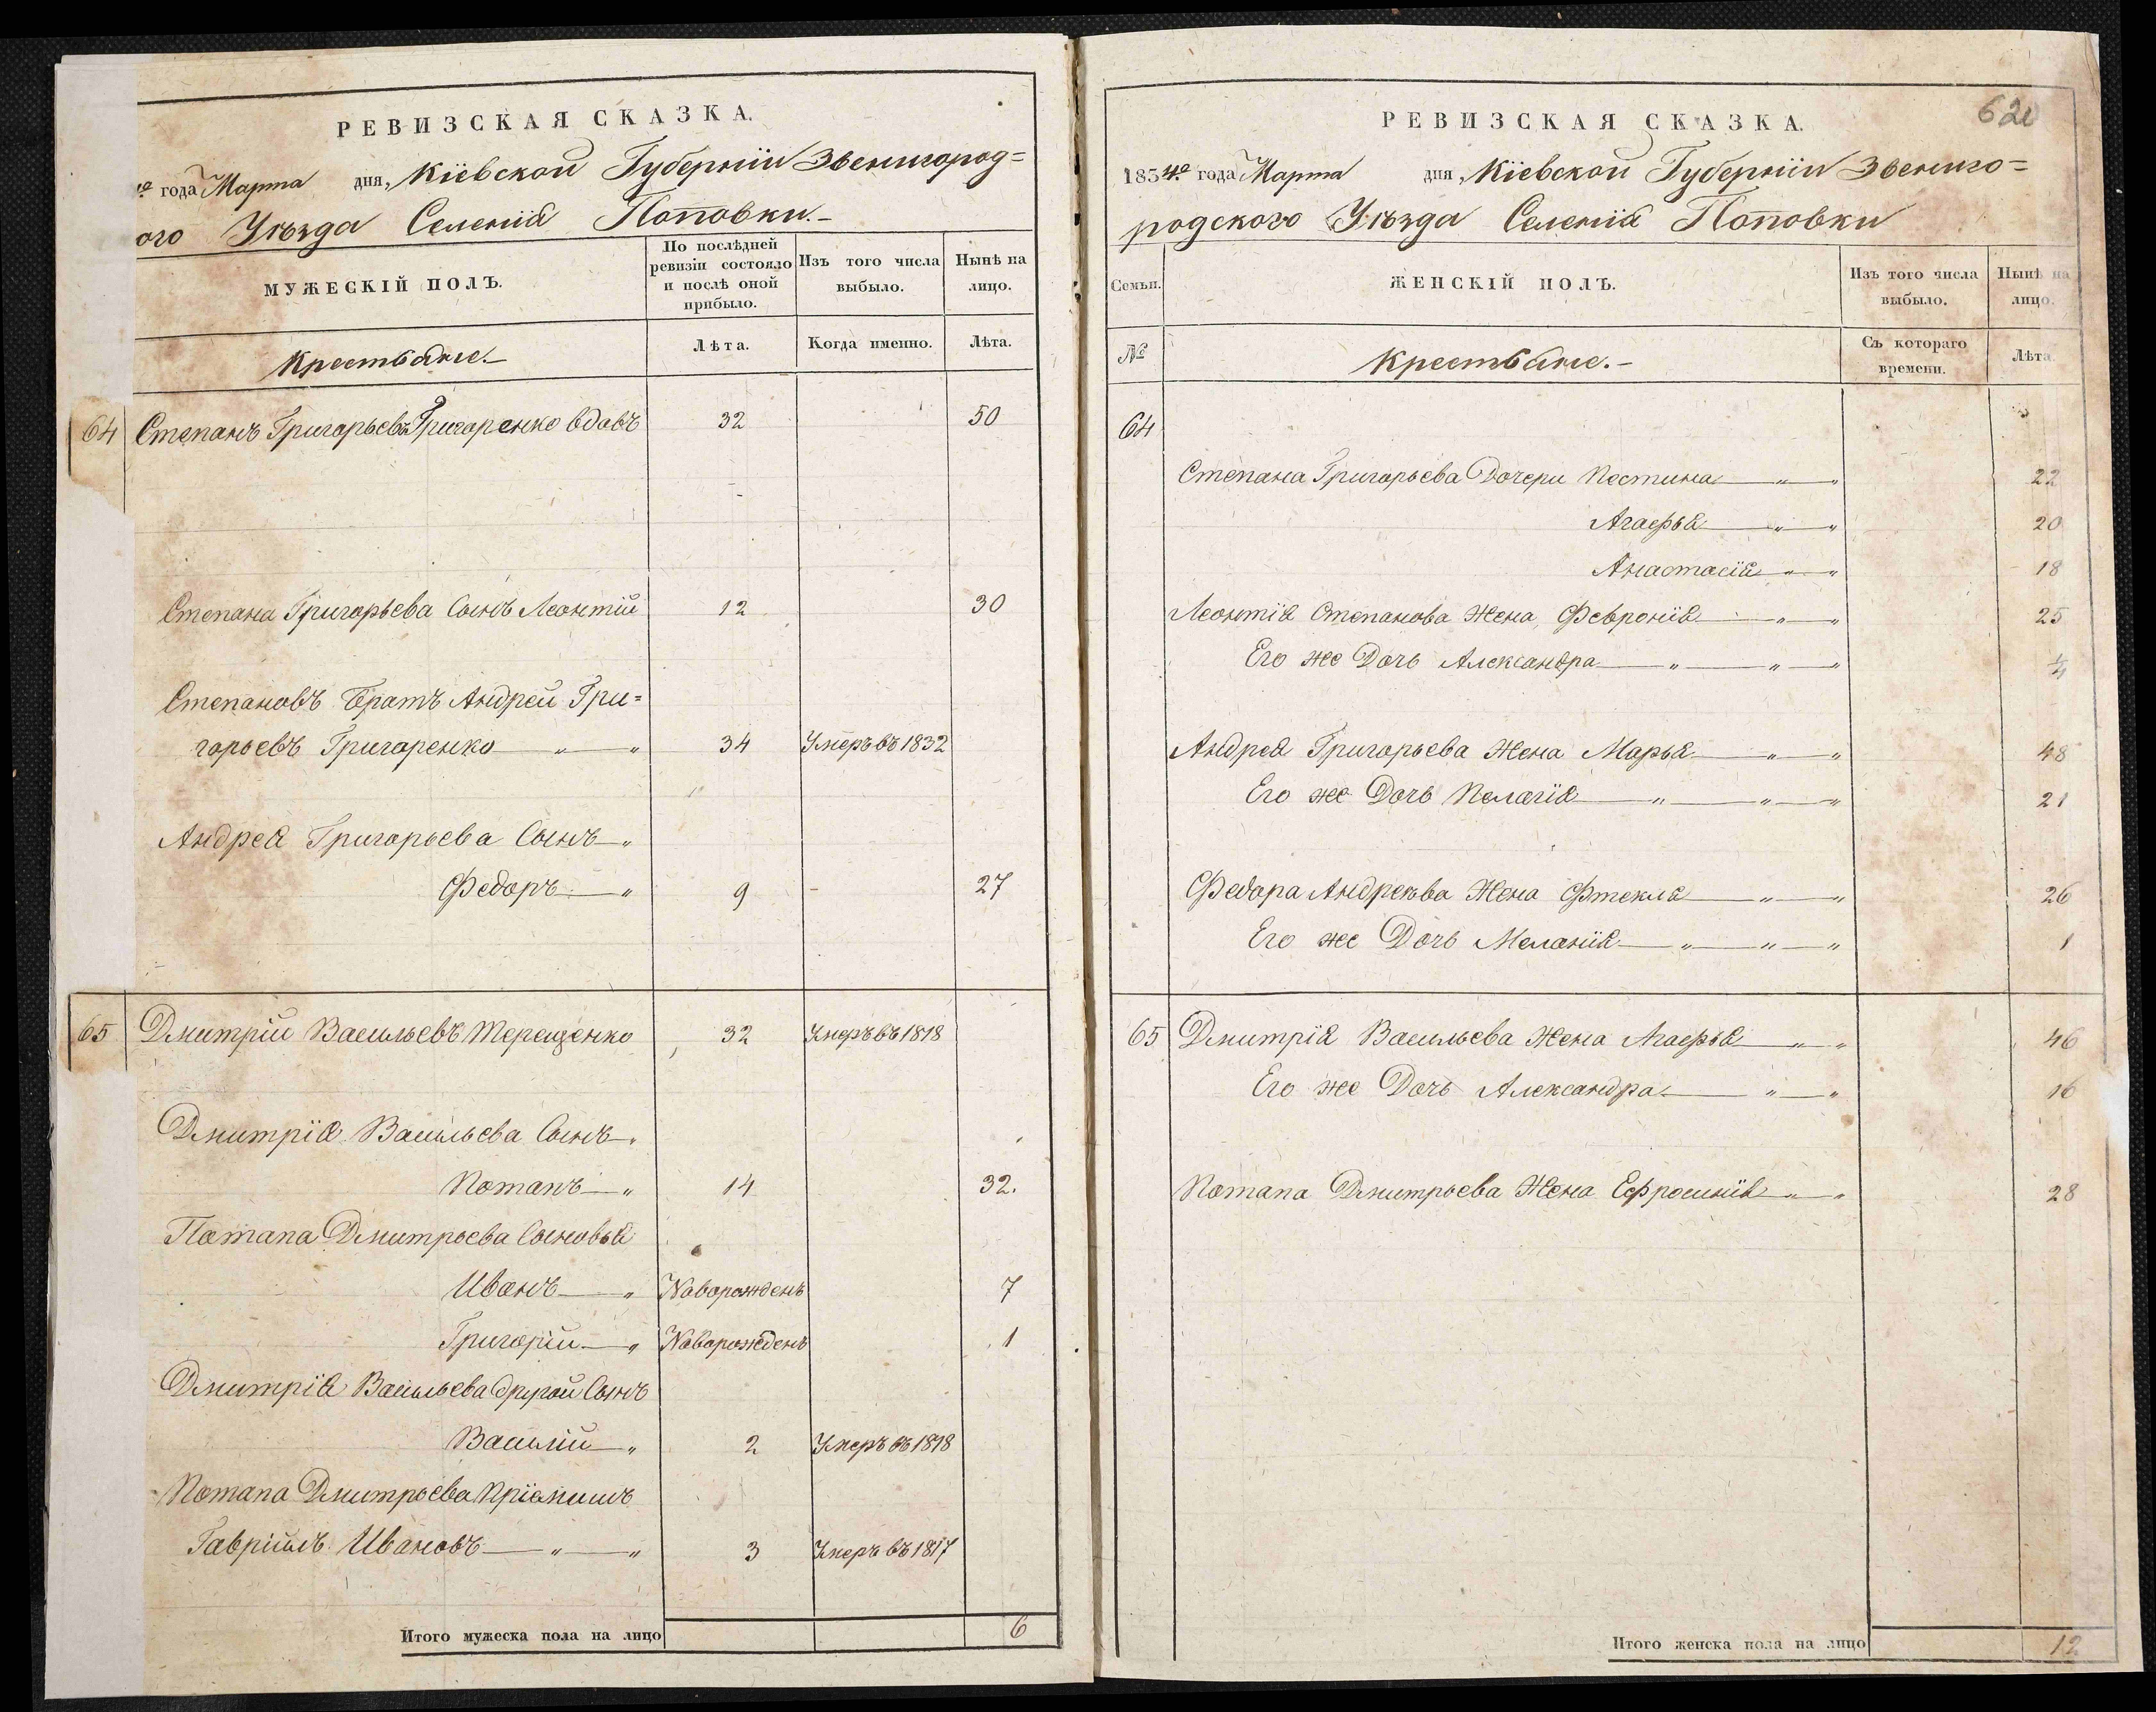 РЕВИЗСКАЯ СКАЗКА.
го года Марта дня, Кіевской Губерніи Звенигород=
ого Уѣзда Селенія Поповки.-
МУЖЕСКІЙ ПОЛЪ.
По послѣдней ревизіи состояло и послѣ оной прибыло.
Изъ того числа выбыло.
Нынѣ на лицо.
Крестьяне.-
Лѣта.
Когда именно.
Лѣта.
64 Степанъ Григорьевъ Григоренко вдовъ 32 50
Степана Григорьева Сынъ Леонтій 12 30
Степановъ Братъ Андрей Гри=
горьевъ Григоренко — „ — „ 34 Умеръ въ 1832
Андрея Григорьева Сынъ — „
Федоръ — „ 9 - 27
65 Дмитрій Васильевъ Терещенко 32 Умеръ въ 1818
Дмитрія Васильева Сынъ — „
Потапъ — „ 14 32.
Потапа Дмитрьева Сыновья
Иванъ — „ Новорожденъ 7
Григорій — „ Новорожденъ 1
Дмитрія Васильева другой Сынъ
Василій — „ 2 Умеръ въ 1818
Потапа Дмитрьева Пріемышъ
Гавріилъ Ивановъ — „ — „ 3 Умеръ въ 1817
Итого мужеска пола на лицо 6
РЕВИЗСКАЯ СКАЗКА.
620
1834го года Марта дня, Кіевской Губерніи Звениго=
родского Уѣзда Селенія Поповки
Семьи.
ЖЕНСКІЙ ПОЛЪ.
Изъ того числа выбыло.
Нынѣ на лицо.
№
Крестьяне.-
Съ котораго времени.
Лѣта.
64
Степана Григорьева Дочери Постина — „ — „ 22
Агафья — „ — „ 20
Анастасія — „ — „ 18
Леонтія Степанова Жена Февронія — „ — „ 25
Его же Дочь Александра — „ — „ — „ ¼
Андрея Григорьева Жена Марья — „ — „ 48
Его же Дочь Пелагія — „ — „ — „ 21
Федора Андреева Жена Фтекля — „ — „ 26
Его же Дочь Меланія — „ — „ — „ 1
65 Дмитрія Васильева Жена Агафья — „ — „ 46
Его же Дочь Александра — „ — „ 16
Потапа Дмитрьева Жена Ефросинія — „ — „ 28
Итого женска пола на лицо 12